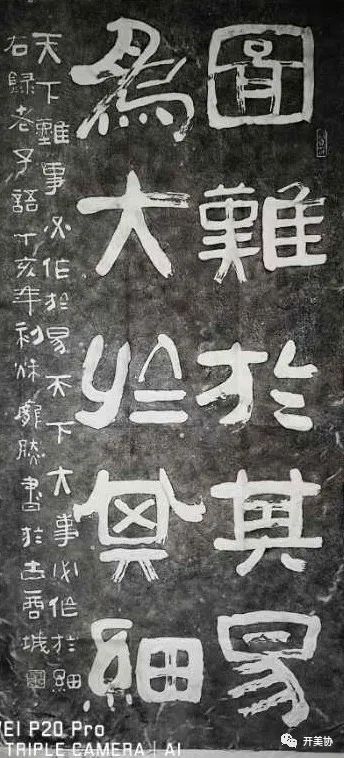 圖難於其易
為大於其細
天下難事必作於易天下大事必作於細
右録老子語丁亥年初秋書於古城
EI P20 Pro
TRIPLE CAMERA | AI
开美协